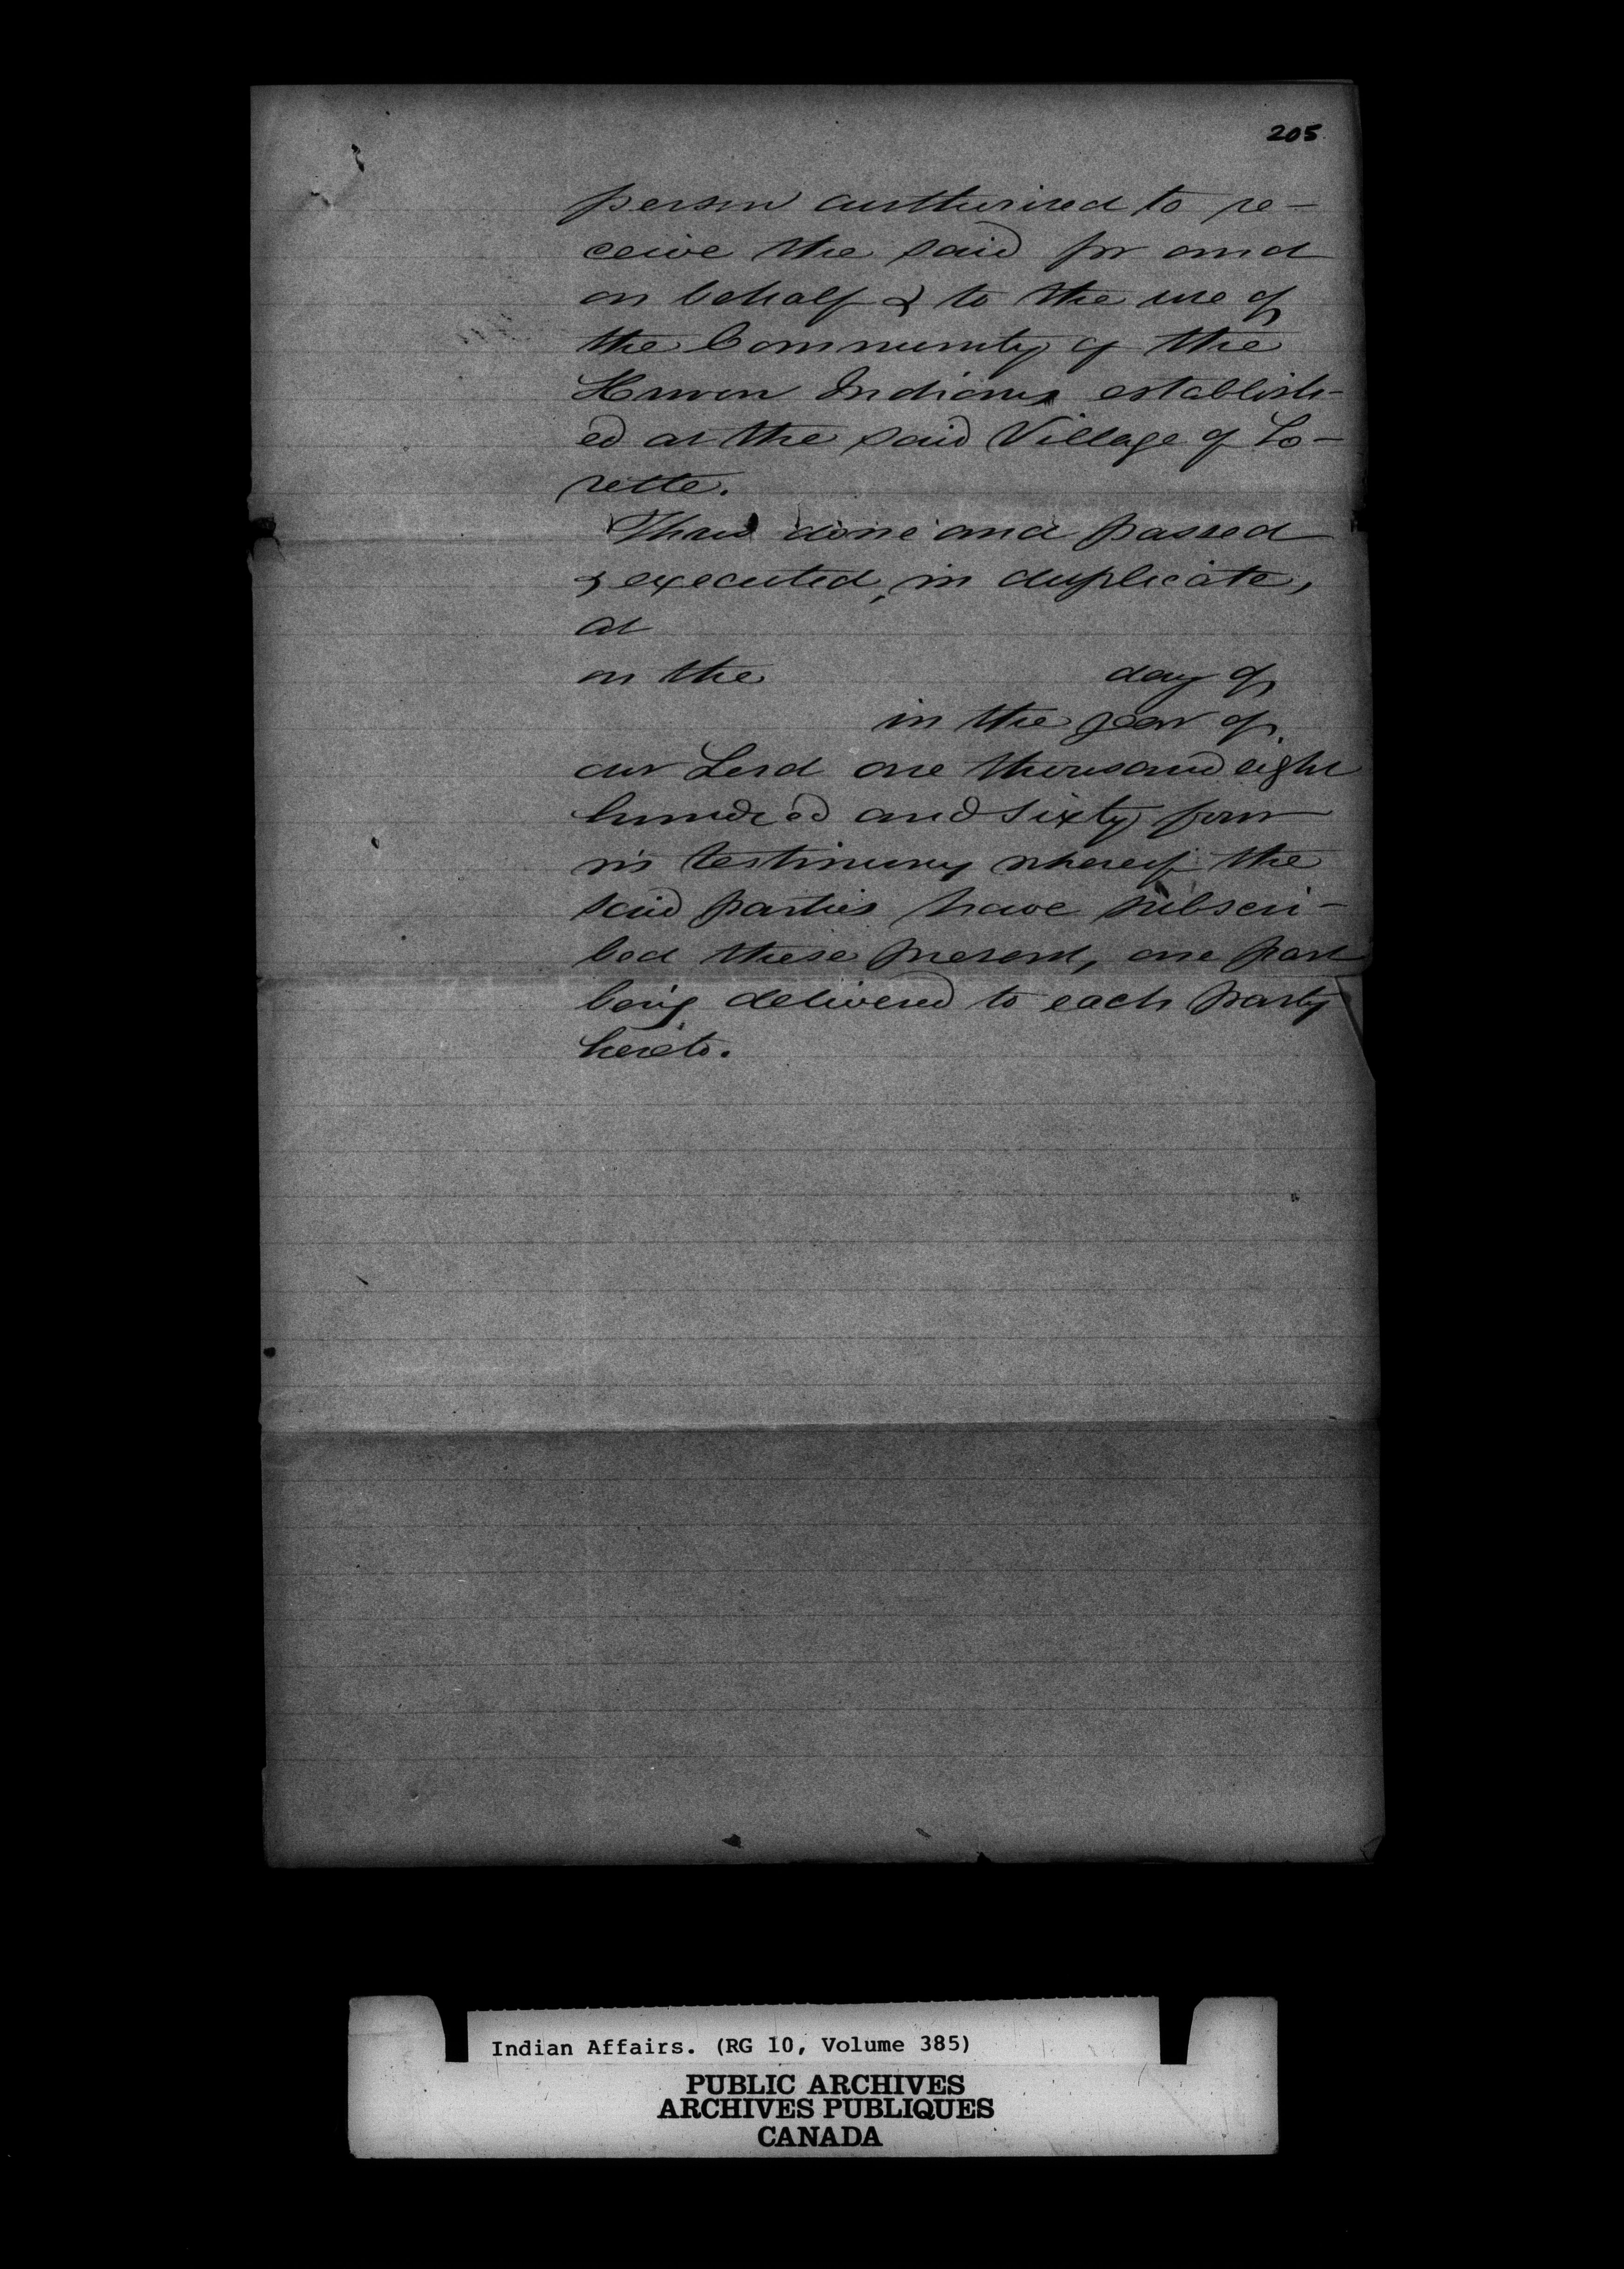 205
person authorised to re-
ceive the said for and
on behalf & to the use of
the Community of the
Huron Indians establish-
ed at the said Village of Lo-
rette.
Thus done and passed
& executed, in duplicate,
at
on the day of
in the year of
our Lord one thousand eight
hundred and sixty four
in testimony whereof the
said parties have subscri-
bed these present, one part
being delivered to each party
hereto.
Indian Affairs. (RG 10, Volume 385)
PUBLIC ARCHIVES
ARCHIVES PUBLIQUES
CANADA